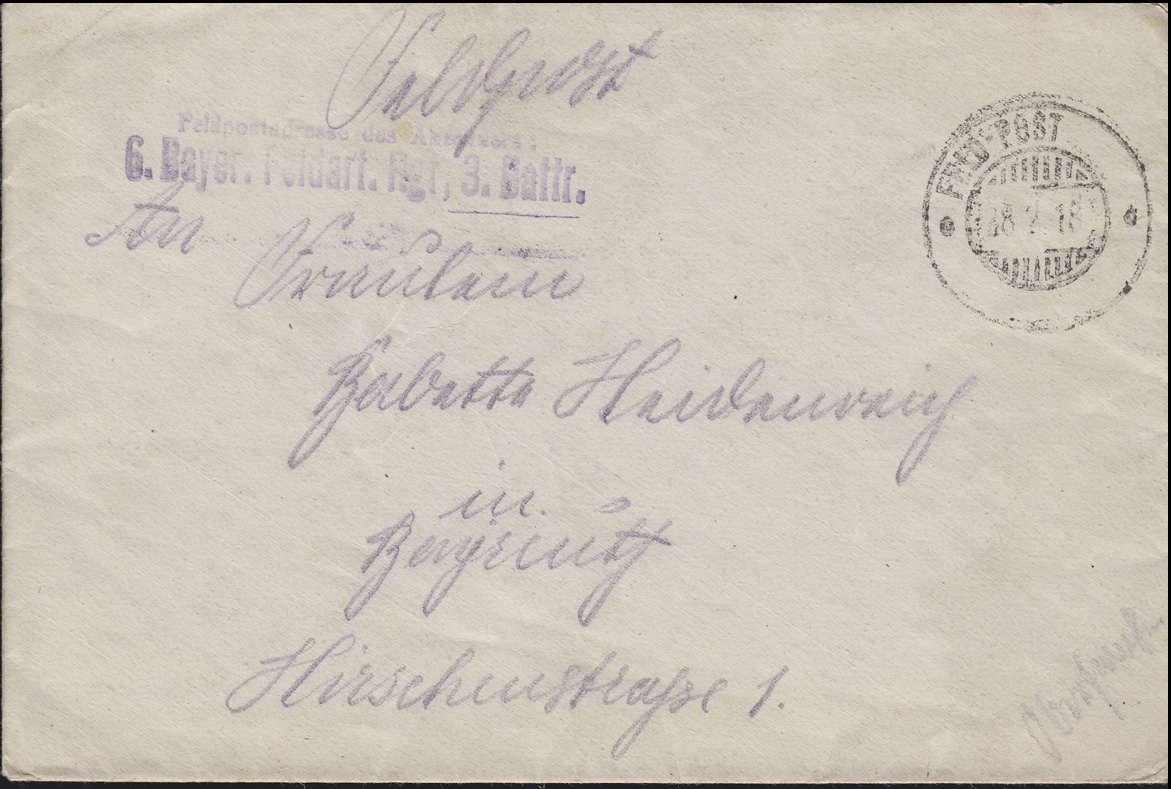 Feldpost
Feldpostadresse des Absenders:
6. Bayer. Feldart. Rgt, 3. Battr.
FELD-POST
28 2. 18
An
Fräulein
Babette Heidenreich
in
Bayreuth
Hirschenstraße 1.